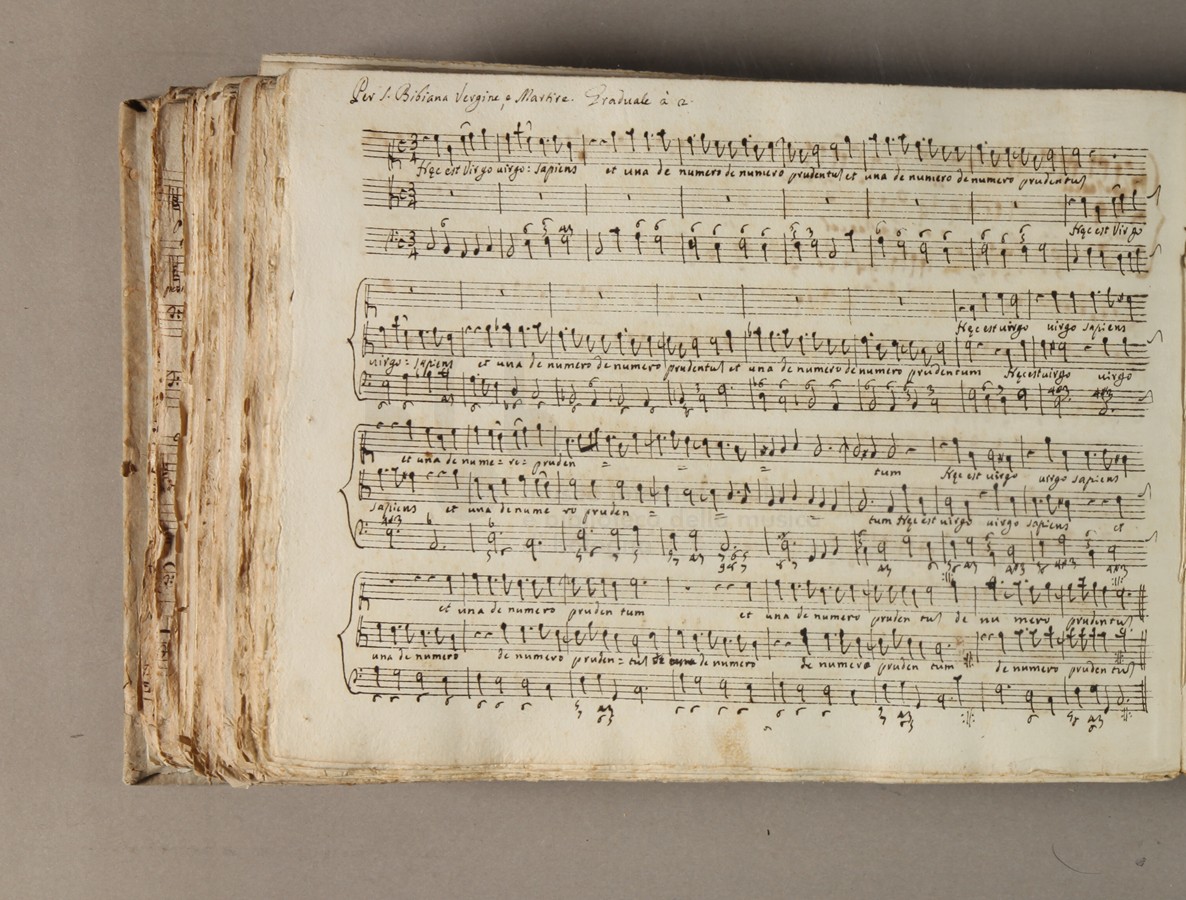 Per S. Bibiana Vergine, e Martire. Graduale à 2.
Hęc est Virgo virgo: sapiens et una de numero de numero prudentul et una de numero de numero prudentul
Hęc est Virgo
Hęc est virgo virgo sapiens
virgo: sapiens et una de numero de numero prudentul et una de numero de numero prudentum Hęc est virgo virgo
et una de nume = ro = pruden = = = tum Hęc est virgo virgo sapiens
sapiens et una de nume ro pruden = = tum Hęc est virgo virgo sapiens et
et una de numero pruden tum et una de numero pruden tul de nu mero prudentul
una de numero de numero pruden = tul de numero de numero pruden tum de numero pruden tul